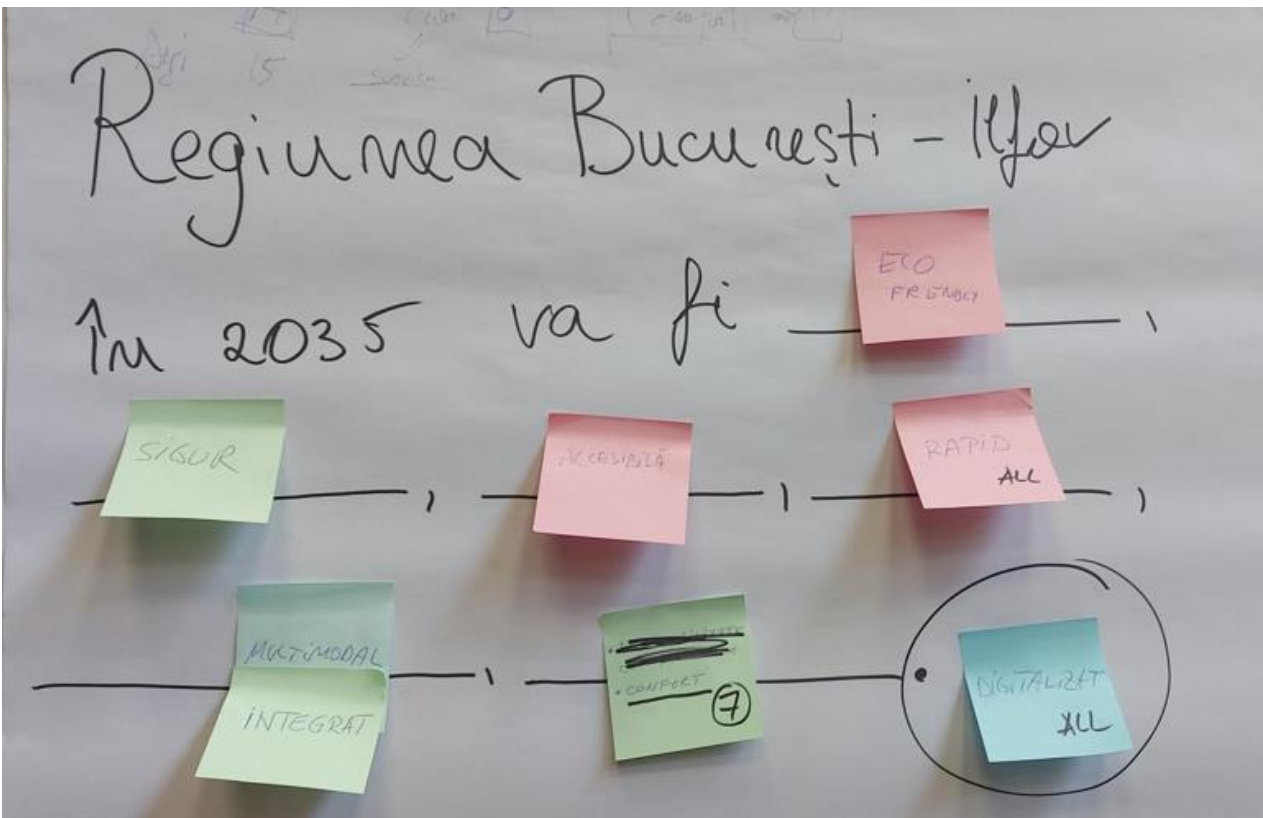 15
Regiunea București - Ilfov
În 2035 va fi
ECO
FRIENDLY
,
SIGUR
,
ACCESIBILĂ
,
RAPID
ALL
,
MULTIMODAL
INTEGRAT
,
• CONFORT
7
.
DIGITALIZAT
ALL